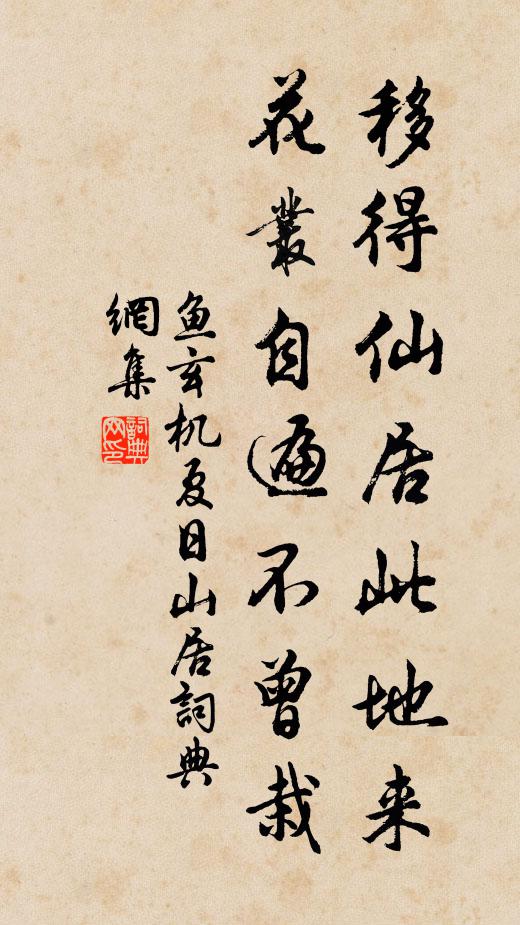 移得仙居此地来
花叢自遍不曾栽
鱼玄机夏日山居詞典
網集
詞典网印